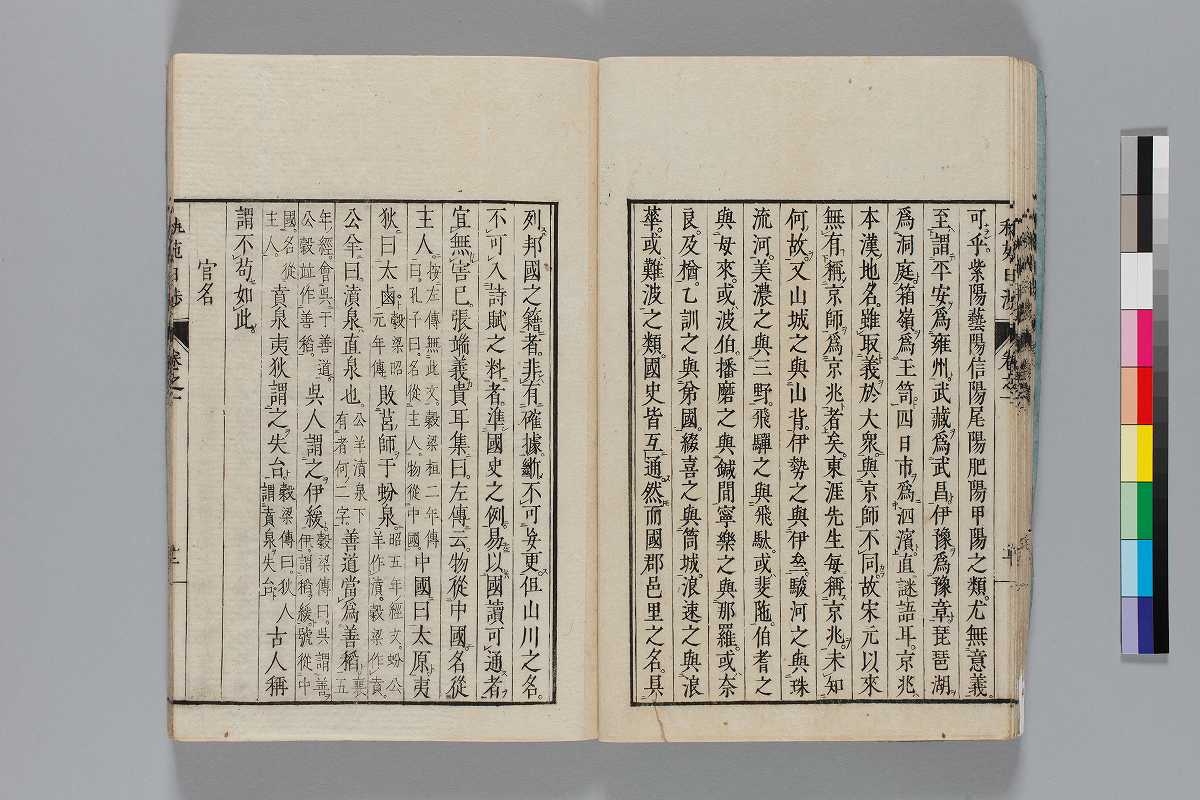 可乎。紫陽藝陽信陽尾陽肥陽甲陽之類。尤無意義。
至謂平安爲雍州。武藏爲武昌。伊豫爲豫章。琵琶湖
爲洞庭。箱嶺爲王笥。四日市爲泗濱。直謎語耳。京兆
本漢地名。雖取義於大衆。與京師不同。故宋元以來
無有稱京師爲京兆者矣。東涯先生每稱京兆。未知
何故。又山城之與山背。伊勢之與伊叁。駿河之與珠
流河。美濃之與三野。飛驒之與飛駄。或斐陁。伯耆之
與母來。或波伯。播磨之與鍼間。寧樂之與那羅。或奈
良。及檜。乙訓之與弟國。綴喜之與筒城。浪速之與浪
華。或難波之類。國史皆互通。然而國郡邑里之名。具
列邦國之籍者。非有確據斷不可妄更。但山川之名。
不可入詩賦之料者。準國史之例。易以國讀可通者
宜無害已。張端義貴耳集曰。左傳云。物從中國。名從
主人。按左傳無此文。穀梁桓二年傳
曰。孔子曰。名從主人。物從中國。中國曰太原。夷
狄曰太鹵。穀梁昭
元年傳敗莒師于蚡泉。昭五年經文。蚡公
羊作濆。穀梁作賁。
公羊曰。濆泉。直泉也。公羊濆泉下
有者何二字。善道當爲善稻。襄五
年經。會吳于善道。
公穀竝作善稻。吳人謂之伊緩。穀梁傳曰。吳謂善
伊。謂稻緩。號從中
國。名從
主人。賁泉夷狄謂之失台。穀梁傳曰。狄人
謂賁泉失台。古人稱
謂不苟。如此。
官名
卷之一
卷之一